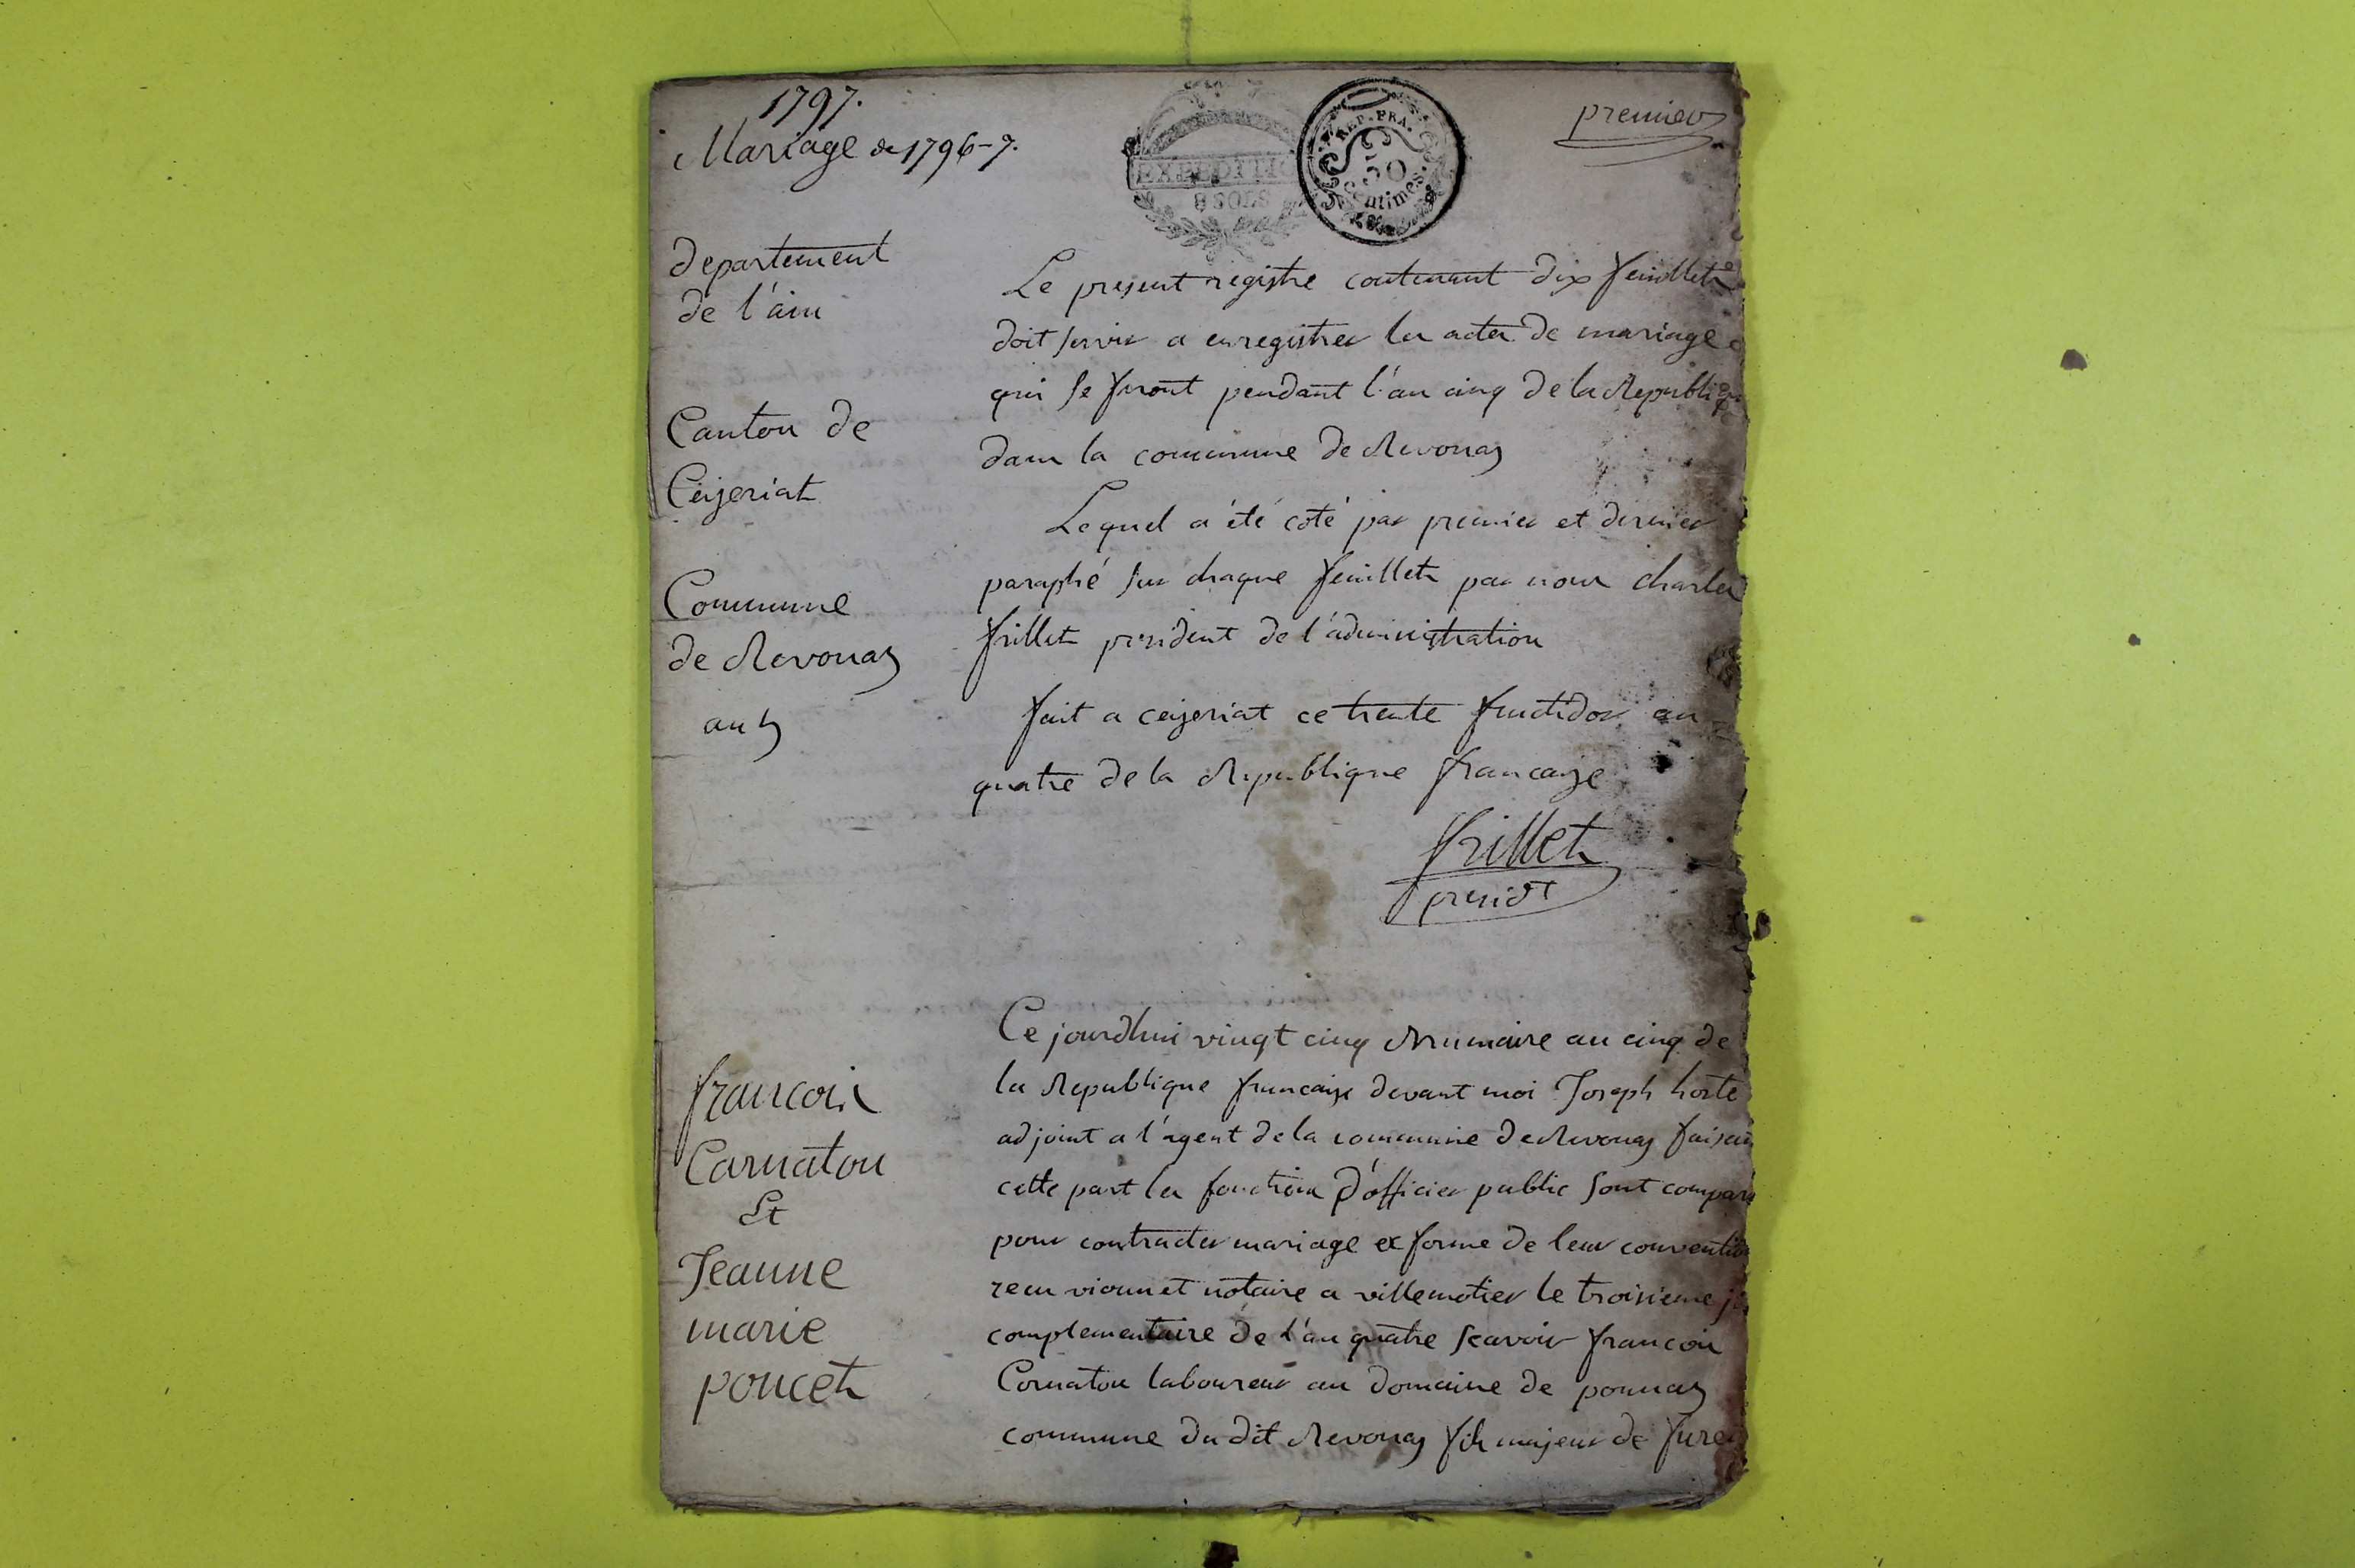 1797.
Mariage de 1796-7.
EXPEDITIO
8 SOLS
REP. FRA.
50
centimes.
premier
departement
de l'ain
Canton de
Ceizeriat
Commune
de Revonaz
an 5
Le present registre contenant dix feuillets
doit servir a enregistrer les actes de mariage
qui se feront pendant l'an cinq de la Republiq
dans la commune de Revonaz
Lequel a été coté par premier et dernier
paraphé sur chaque feuillets par nous charles
frillet president de l'administration
fait a ceizeriat ce trente fructidor an
quatre de la Republique francaize
frillet
presidt
francois
Carnaton
Et
Jeanne
marie
poncet
Ce jourdhui vingt cinq Brumaire an cinq de
la Republique francaise devant moi Joseph hoste
adjoint a l'agent de la commune de Revonaz faisan
cette part les fonctions d'officier public sont comparu
pour contracter mariage ex forme de leur convention
recu vionnet notaire a villemotier le troisieme jo
complementaire de l'an quatre scavoir francois
Cornaton laboureur au domaine de ponnaz
commune du dit Revonaz fils majeur de fure